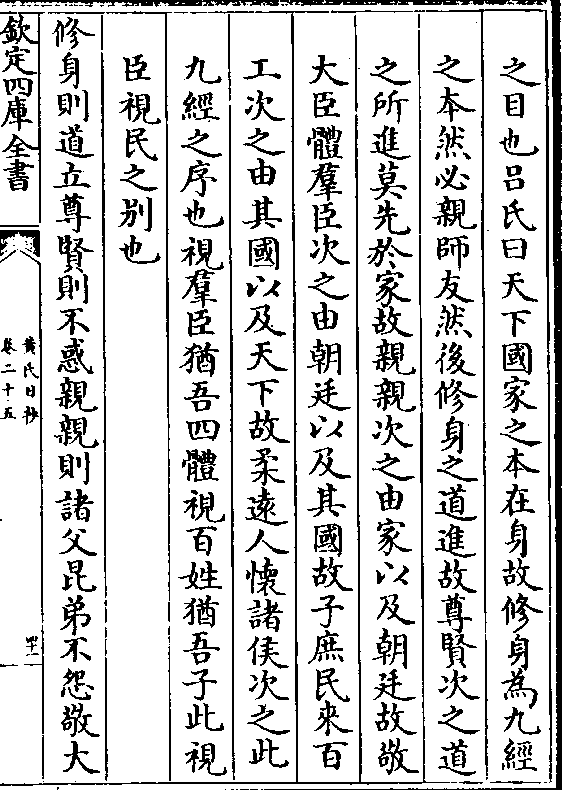 之目也吕氏曰天下國家之本在身故修身為九經
之本然必親師友然後修身之道進故尊賢次之道
之所進莫先於家故親親次之由家以及朝廷故敬
大臣體羣臣次之由朝廷以及其國故子庶民來百
工次之由其國以及天下故柔逺人懷諸侯次之此
九經之序也視羣臣猶吾四體視百姓猶吾子此視
臣視民之别也
修身則道立尊賢則不惑親親則諸父昆弟不怨敬大
欽定四庫全書
黄氏日抄
卷二十五
四十一